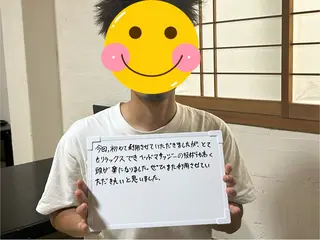 今回、初めて利用させていただきましたが、とて
もリラックスでき ヘッドマッサージの技術も高く
頭が楽になりました。ぜひまた利用させてい
ただきたいと思いました。